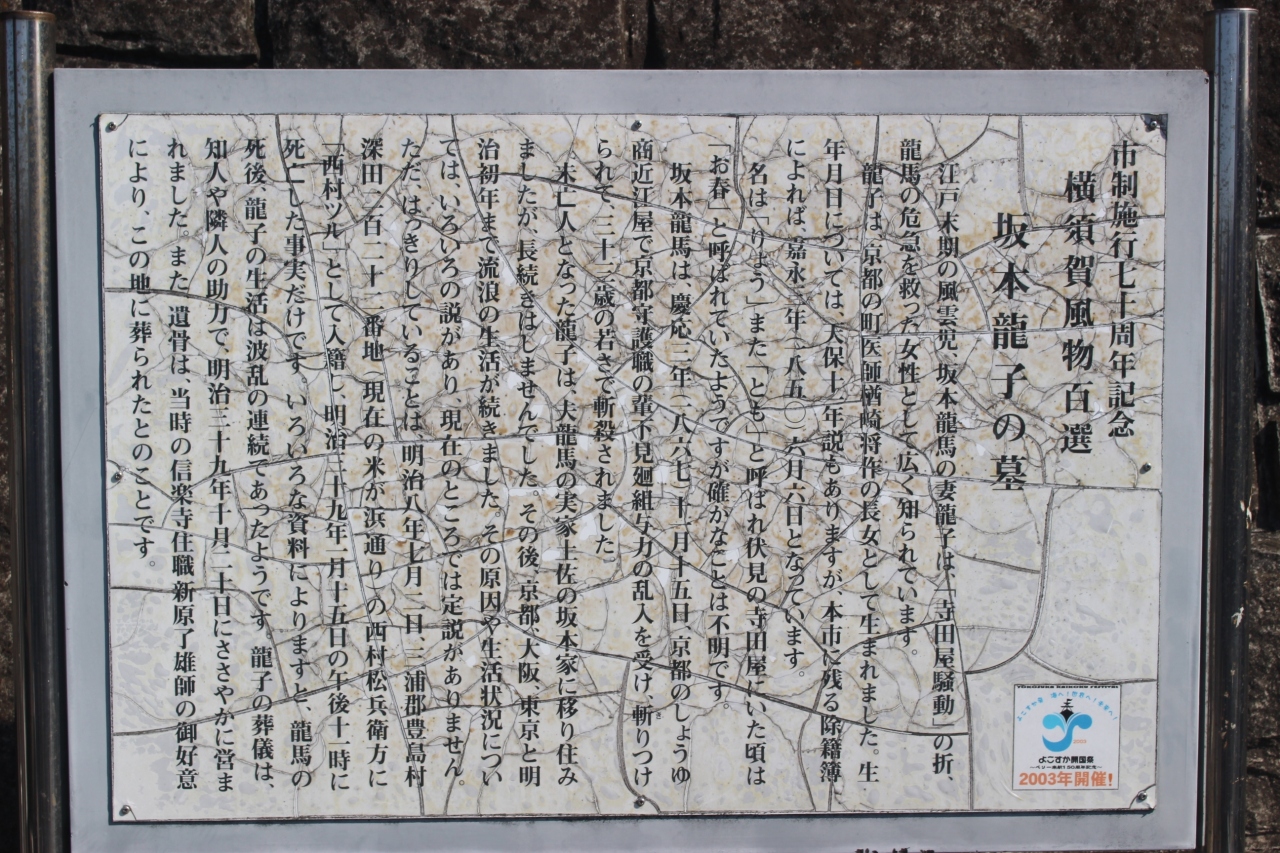 市制施行七十周年記念
横須賀風物百選
坂本龍子の墓
江戸末期の風雲児、坂本龍馬の妻龍子は、「寺田屋騒動」の折、
龍馬の危急を救った女性として広く知られています。
龍子は、京都の町医師楢崎将作の長女として生まれました。生
年月日については、天保十一年説もありますが、本市に残る除籍簿
によれば、嘉永三年(一八五〇)六月六日となっています。
名は「りょう」また「とも」と呼ばれ伏見の寺田屋にいた頃は
「お春」と呼ばれていたようですが確かなことは不明です。
坂本龍馬は、慶応三年(一八六七)十一月十五日京都のしょうゆ
商近江屋で京都守護職の輩下見廻組与力の乱入を受け、斬りつけ
られて、三十三歳の若さで斬殺されました。
未亡人となった龍子は、夫龍馬の実家土佐の坂本家に移り住み
ましたが、長続きはしませんでした。その後、京都、大阪、東京と明
治初年まで流浪の生活が続きました。その原因や生活状況につい
ては、いろいろの説があり、現在のところでは定説がありません。
ただ、はっきりしていることは、明治八年七月二日、三浦郡豊島村
深田二百二十二番地(現在の米が浜通り)の西村松兵衛方に
「西村ツル」として入籍し、明治三十九年一月十五日の午後十一時に
死亡した事実だけです。いろいろな資料によりますと、龍馬の
死後、龍子の生活は波乱の連続であったようです。龍子の葬儀は、
知人や隣人の助力で、明治三十九年十月二十日にささやかに営ま
れました。また、遺骨は、当時の信楽寺住職新原了雄師の御好意
により、この地に葬られたとのことです。
よこすか開国祭
2003年開催!